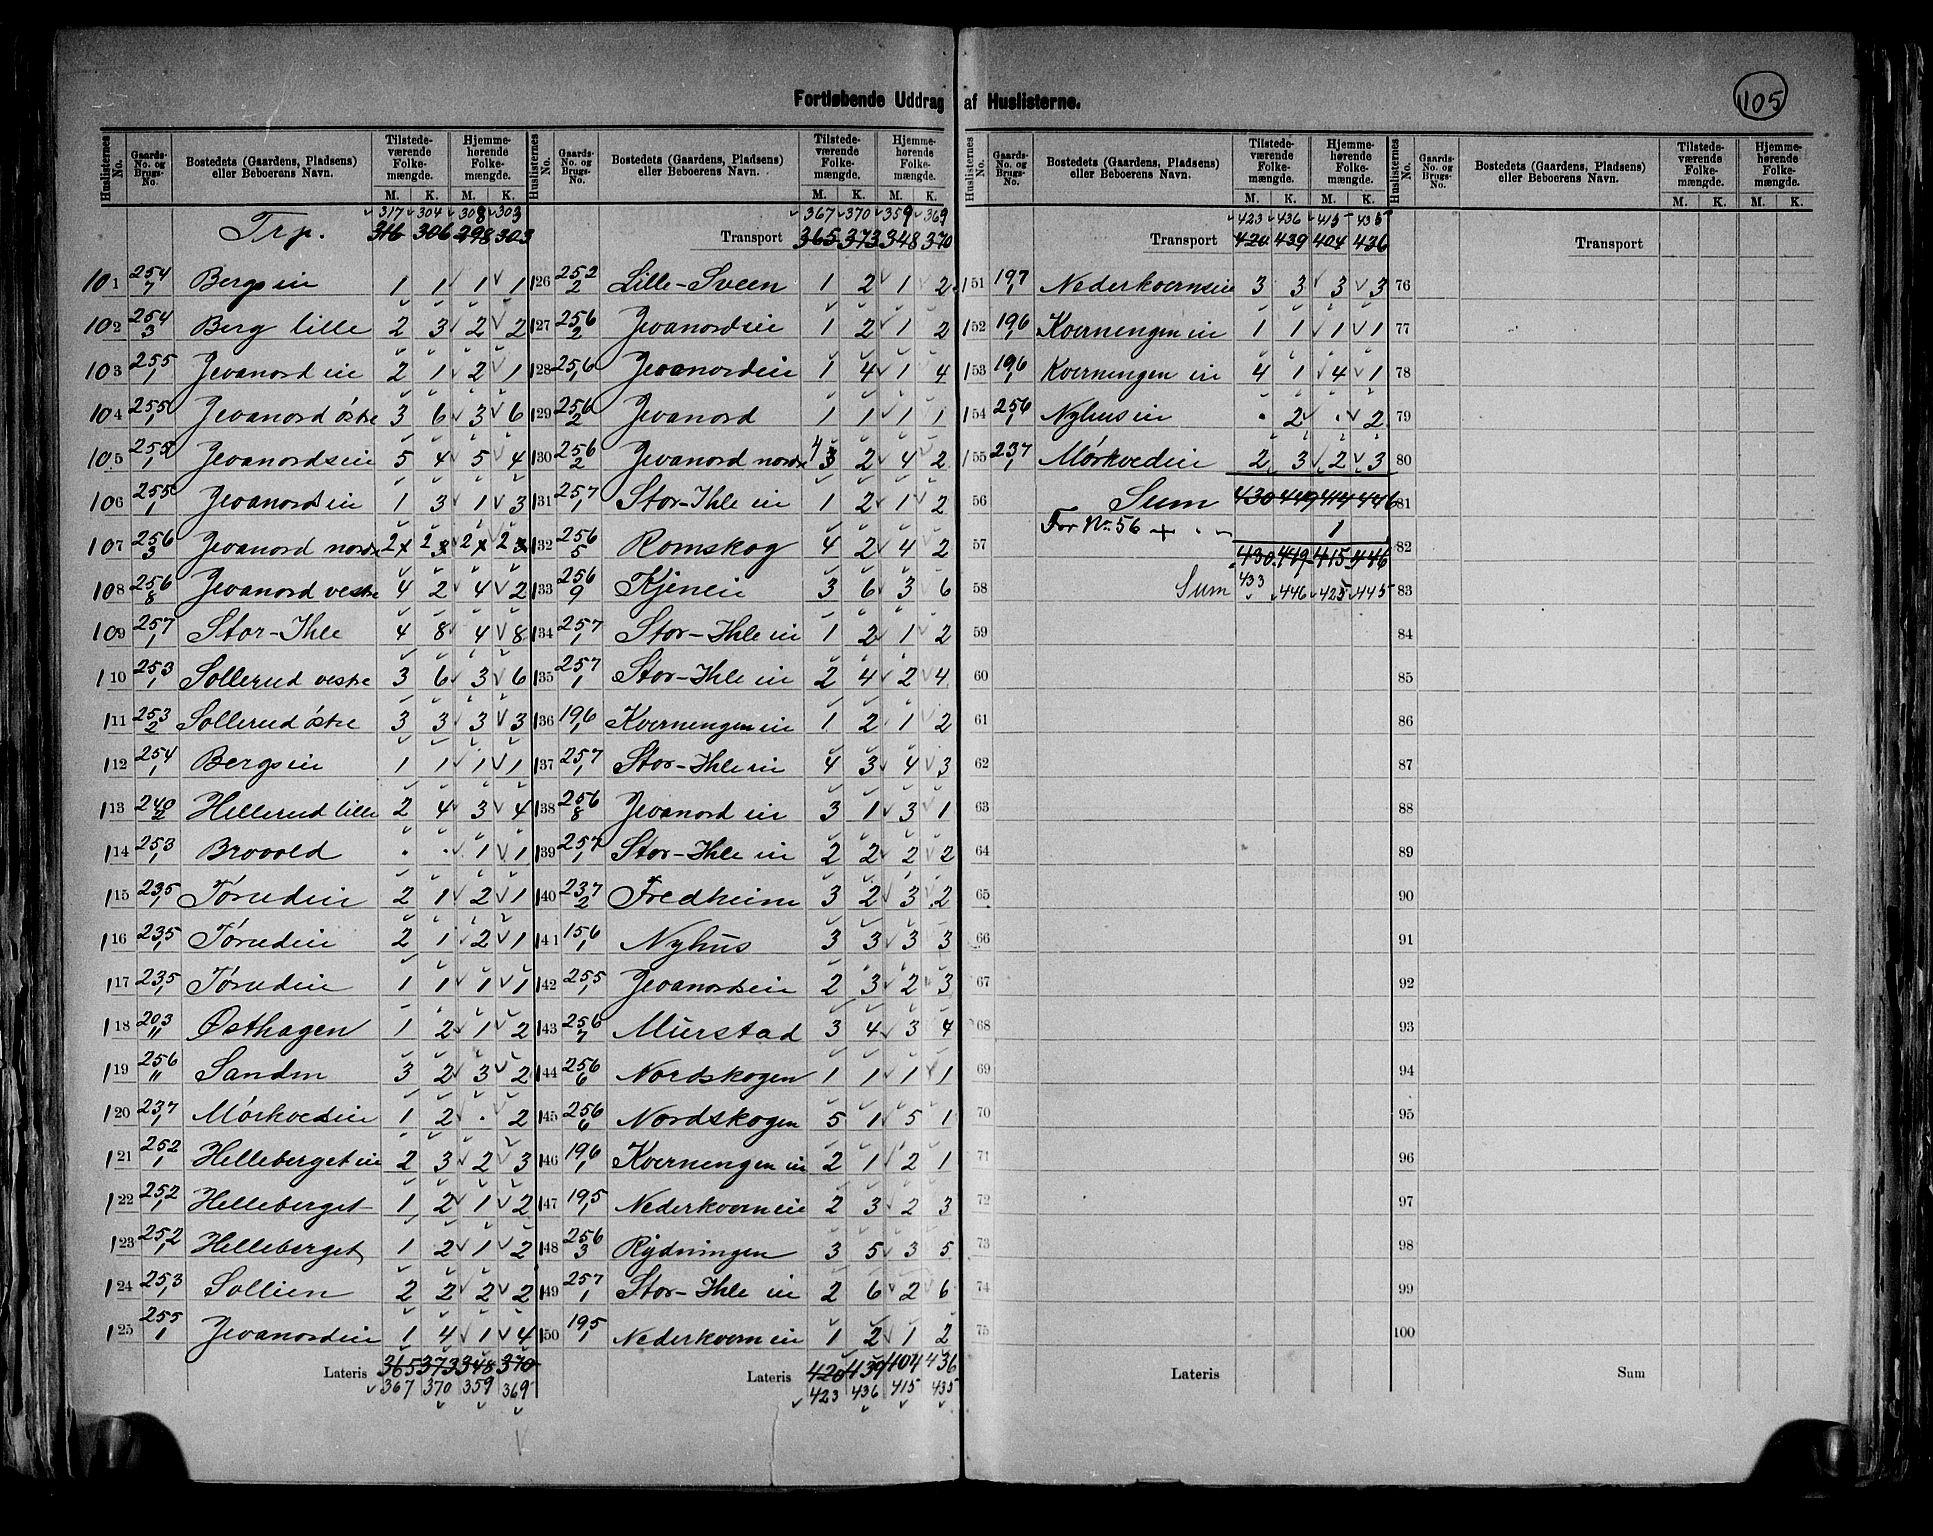 Fortløbende Uddrag af Huslisterne.
105
Huslisternes No. Gaards-No. og Brugs-No. Bostedets (Gaardens, Pladsens) eller Beboerens Navn. Tilstedeværende Folkemængde. M. K. Hjemmehørende Folkemængde. M. K.
317 304 308 303
Trp. 316 306 298 303
101 254/7 Bergsein 1 1 1 1
102 254/3 Berg lille 2 3 2 2
103 255/1 Jevanord ein 2 1 2 1
104 255/1 Jevanord østre 3 6 3 6
105 255/1 Jevanordsein 5 4 5 4
106 255/1 Jevanordsein 1 3 1 3
107 256/3 Jevanord nordre 2 2 2 2
108 256/8 Jevanord vestre 4 2 4 2
109 257/1 Stor-Ihle 4 8 4 8
110 253/1 Sollerud vestre 3 6 3 6
111 253/2 Sollerud østre 3 3 3 3
112 254/1 Bergsein 1 1 1 1
113 240/2 Hellerud lille 2 4 3 4
114 253/1 Brovold . . 1 1
115 235/1 Tørudein 2 1 2 1
116 235/1 Tørudein 2 1 2 1
117 235/1 Tørudein 1 1 1 1
118 203/11 Østhagen 1 2 1 2
119 256/11 Sanden 3 2 3 2
120 237/1 Mørkvedein 1 2 . 2
121 252/1 Helleberget ein 2 3 2 3
122 252/1 Helleberget 1 2 1 2
123 252/1 Helleberget 1 2 1 2
124 253/1 Sollien 2 2 2 2
125 255/1 Jevanordein 1 4 1 4
Lateris 365 373 348 370
367 370 359 369
Huslisternes No. Gaards-No. og Brugs-No. Bostedets (Gaardens, Pladsens) eller Beboerens Navn. Tilstedeværende Folkemængde. M. K. Hjemmehørende Folkemængde. M. K.
367 370 359 369
Transport 365 373 348 370
126 252/2 Lille-Sveen 1 2 1 2
127 256/2 Jevanordsein 1 2 1 2
128 256/1 Jevanordein 1 4 1 4
129 256/2 Jevanord 1 1 1 1
130 256/2 Jevanord nordre 4 2 4 2
131 257/1 Stor-Ihle ein 1 2 1 2
132 256/5 Romskog 4 2 4 2
133 256/9 Kjenein 3 6 3 6
134 257/1 Stor-Ihle ein 1 2 1 2
135 257/1 Stor-Ihle ein 2 4 2 4
136 196/1 Kverningen ein 1 2 1 2
137 257/1 Stor-Ihle ein 4 3 4 3
138 256/8 Jevanord ein 3 1 3 1
139 257/1 Stor-Ihle ein 2 2 2 2
140 237/2 Fredheim 3 2 3 2
141 156/1 Nyhus 3 3 3 3
142 255/1 Jevanordsein 2 3 2 3
143 256/7 Murstad 3 4 3 4
144 256/6 Nordskogen 1 1 1 1
145 256/6 Nordskogen 5 1 5 1
146 196/1 Kverningen ein 2 1 2 1
147 195/1 Nederkvern ein 2 3 2 3
148 256/3 Rydningen 3 5 3 5
149 257/1 Stor-Ihle ein 2 6 2 6
150 195/1 Nederkvern ein 1 2 1 2
Lateris 420 439 404 436
423 436 415 435
Huslisternes No. Gaards-No. og Brugs-No. Bostedets (Gaardens, Pladsens) eller Beboerens Navn. Tilstedeværende Folkemængde. M. K. Hjemmehørende Folkemængde. M. K.
423 436 415 435
Transport 420 439 404 436
151 197/1 Nederkvernsein 3 3 3 3
152 196/1 Kverningen ein 1 1 1 1
153 196/1 Kverningen ein 4 1 4 1
154 256/1 Nyhusein . 2 . 2
155 237/1 Mørkvedein 2 3 2 3
56 Sum 430 449 414 446
For No. 56 + . - 1
57 430 449 415 446
58 Sum 433 446 425 445
59
60
61
62
63
64
65
66
67
68
69
70
71
72
73
74
75
Lateris
Huslisternes No. Gaards-No. og Brugs-No. Bostedets (Gaardens, Pladsens) eller Beboerens Navn. Tilstedeværende Folkemængde. M. K. Hjemmehørende Folkemængde. M. K.
Transport
76
77
78
79
80
81
82
83
84
85
86
87
88
89
90
91
92
93
94
95
96
97
98
99
100
Sum